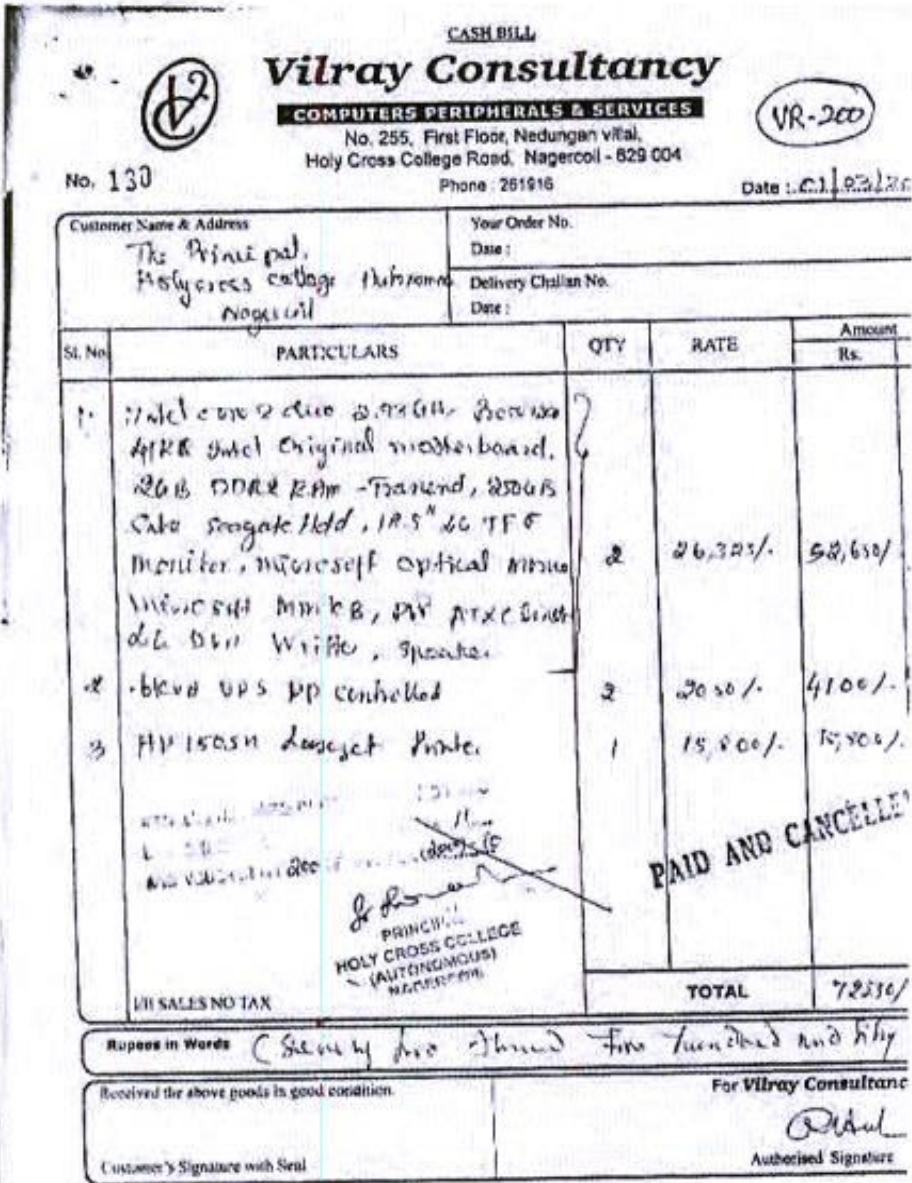 CASH BILL
Vilray Consultancy
COMPUTERS PERIPHERALS & SERVICES
VR-200
No. 255, First Floor, Nedungan vilai,
Holy Cross College Road, Nagercoil - 629 004
No. 130
Phone : 261916
Date : 01/03/20
Customer Name & Address
The Principal,
Holycross college
Nagercoil
Your Order No.
Date :
Delivery Challan No.
Date :
Sl. No PARTICULARS QTY RATE Amount
Rs.
1. Intel core 2 duo 2.93GHz
Intel Original motherboard,
2GB DDR2 RAM - , 250GB
Seagate Hdd, 18.5" LG TFT
Monitor, microsoft optical mouse 2 26,325/. 52,650/.
Microsoft MM KB,
LG DVD Writer, Speaker
2 UPS controlled 2 2050/. 4100/.
3 HP 1505n Laserjet Printer 1 15,800/. 15,800/.
PAID AND CANCELLE
PRINCIPAL
HOLY CROSS COLLEGE
(AUTONOMOUS)
NAGERCOIL
SALES NO TAX
TOTAL 72550/
Rupees in Words (Seventy two Thousand Five hundred and fifty
Received the above goods in good condition.
For Vilray Consultanc
Customer's Signature with Seal
Authorised Signature